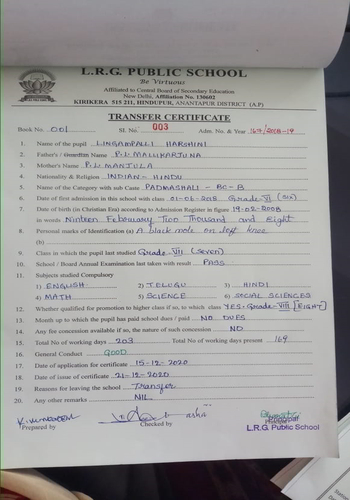 L.R.G. PUBLIC SCHOOL
Be Virtuous
Affiliated to Central Board of Secondary Education
New Delhi, Affiliation No. 130602
KIRIKERA 515 211, HINDUPUR, ANANTAPUR DISTRICT (A.P)
TRANSFER CERTIFICATE
Book No. 001 Sl. No. 003 Adm. No. & Year 167/2018-19
1. Name of the pupil LINGAMPALLI HARSHINI
2. Father's / Guardian Name P.L. MALLIKARJUNA
3. Mother's Name P.L. MANJULA
4. Nationality & Religion INDIAN - HINDU
5. Name of the Category with sub Caste PADMASHALI - BC-B
6. Date of first admission in this school with class 01-06-2018 Grade-VI (six)
7. Date of birth (in Christian Era) according to Admission Register in figure 19-02-2008
in words Nineteen February Two Thousand and Eight
8. Personal marks of Identification (a) A black mole on left knee
(b)
9. Class in which the pupil last studied Grade-VII (Seven)
10. School / Board Annual Examination last taken with result PASS
11. Subjects studied Compulsory
1) ENGLISH 2) TELUGU 3) HINDI
4) MATH 5) SCIENCE 6) SOCIAL SCIENCES
12. Whether qualified for promotion to higher class if so, to which class YES - Grade-VIII [EIGHT]
13. Month up to which the pupil has paid school dues / paid NO DUES
14. Any fee concession available if so, the nature of such concession NO
15. Total No of working days 203 Total No of working days present 169
16. General Conduct GOOD
17. Date of application for certificate 15-12-2020
18. Date of issue of certificate 21-12-2020
19. Reasons for leaving the school Transfer
20. Any other remarks NIL
Prepared by Checked by Principal
L.R.G. Public School